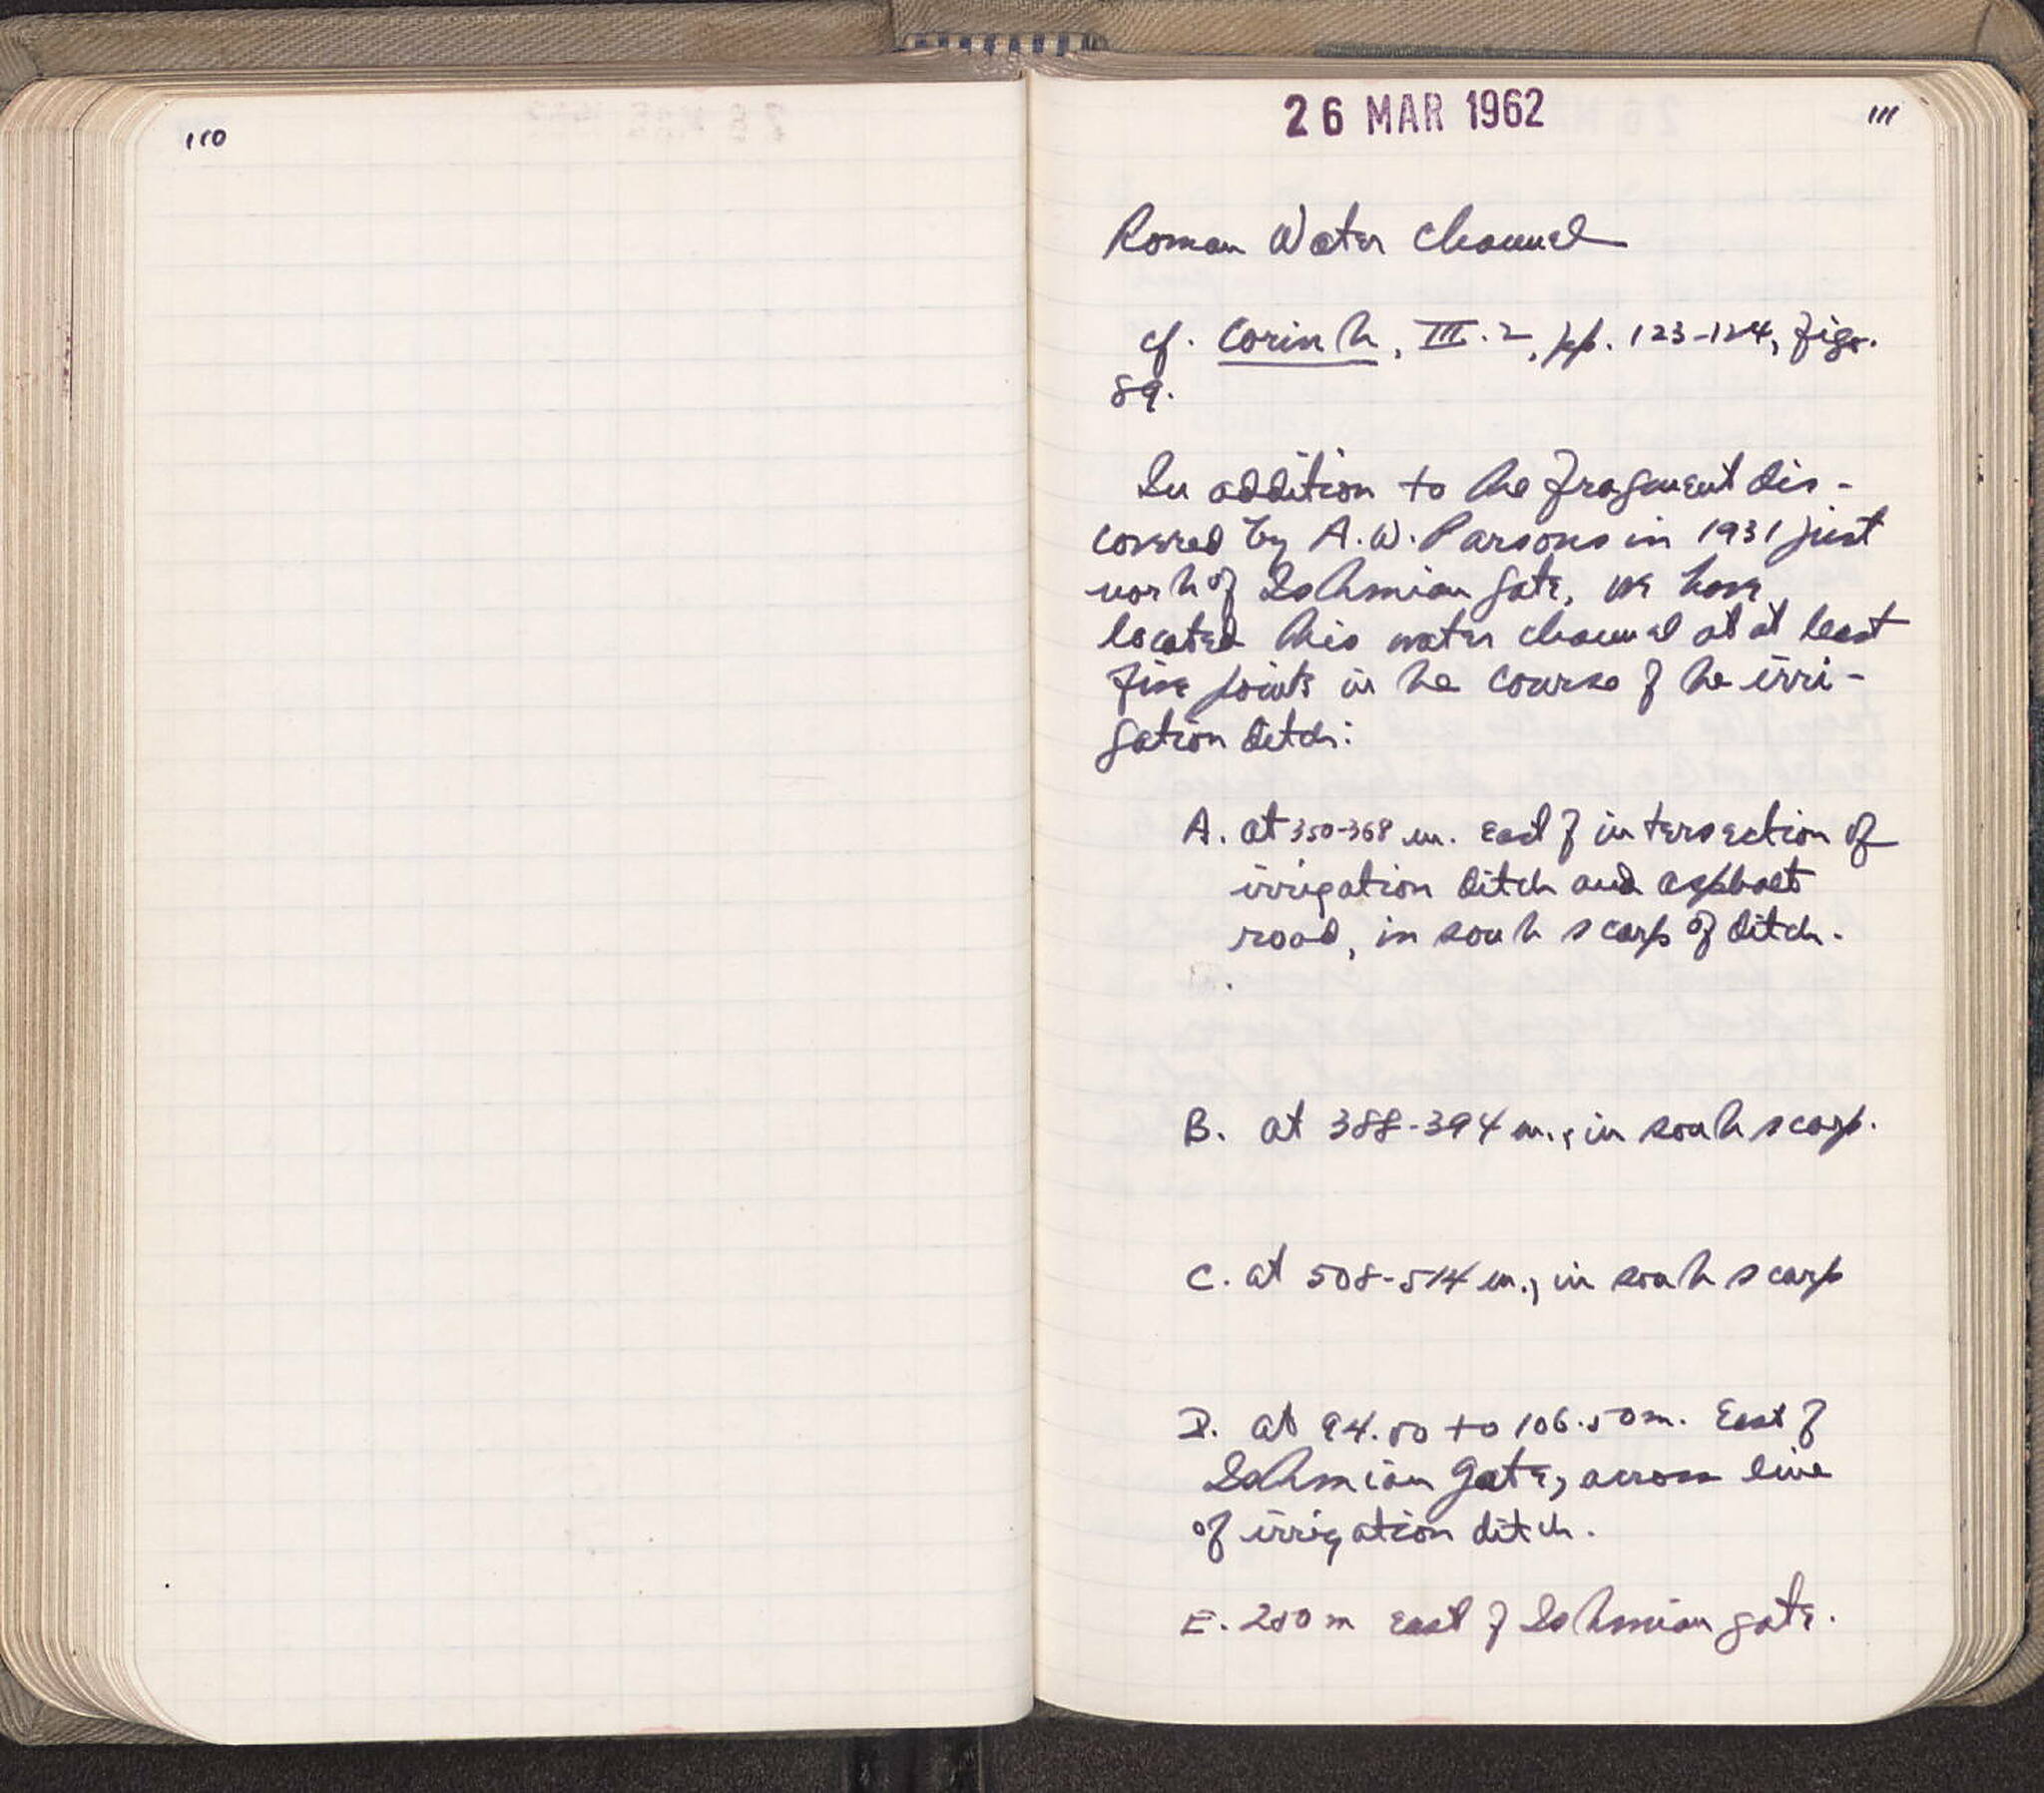 110
26 MAR 1962
111
Roman Water Channel
cf. Corinth, III.2, pp. 123-124, figs.
89.
In addition to the fragment dis-
covered by A.W. Parsons in 1931 just
north of Isthmian gate, we have
located this water channel at at least
five points in the course of the irri-
gation ditch:
A. at 350-368 m. east of intersection of
irrigation ditch and asphalt
road, in south scarp of ditch.
B. at 388-394 m., in south scarp.
C. at 508-514 m., in south scarp
D. at 94.50 to 106.50 m. East of
Isthmian Gate, across line
of irrigation ditch.
E. 250 m east of Isthmian gate.